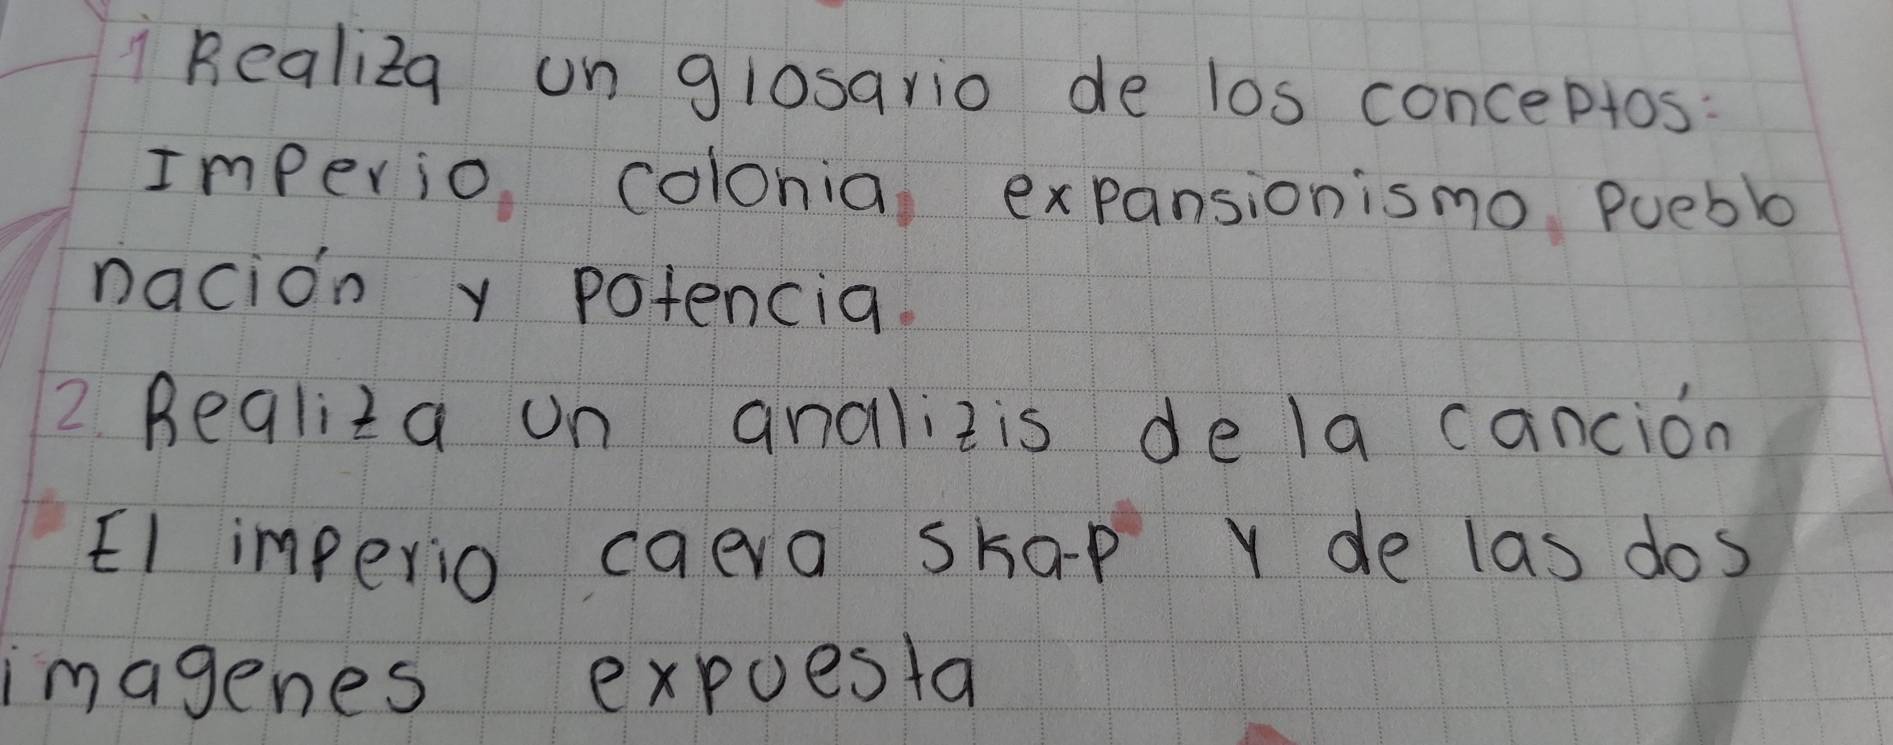 1 Realiza un glosario de los conceptos:
Imperio, colonia, expansionismo, Pueblo
nación y potencia.
2. Realiza un analizis de la canción
"El imperio caera ska-p" y de las dos
imagenes expuesta